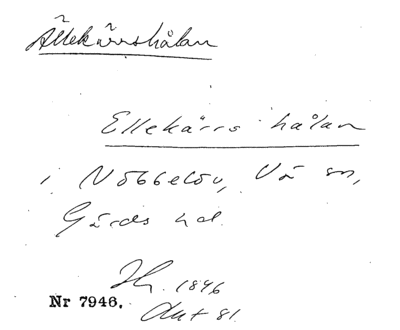 Ällekärrshålan
Ellekärrs hålan
i Nöbbelöv, Vä sn,
Gärds hd.
1896
Nr 7946.